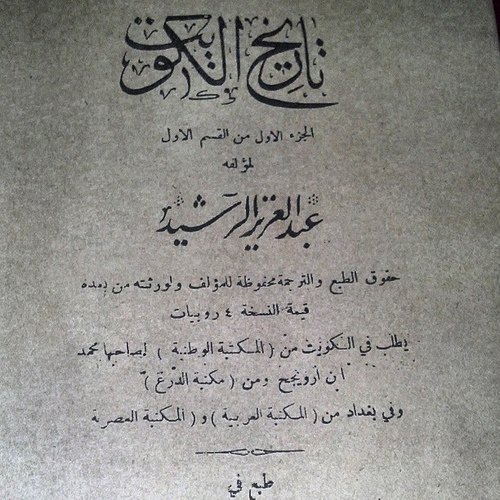 تاريخ الكويت
الجزء الاول من القسم الاول
لمؤلفه
عبدالعزيز الرشيد
حقوق الطبع والترجمة محفوظة للمؤلف ولورثته من بعده
قيمة النسخة ٤ روبيات
يطلب في الكويت من ( المكتبة الوطنية ) لصاحبها محمد
ابن ارويجح ومن ( مكتبة )
وفي بغداد من ( المكتبة العربية ) و ( المكتبة العصرية
طبع في